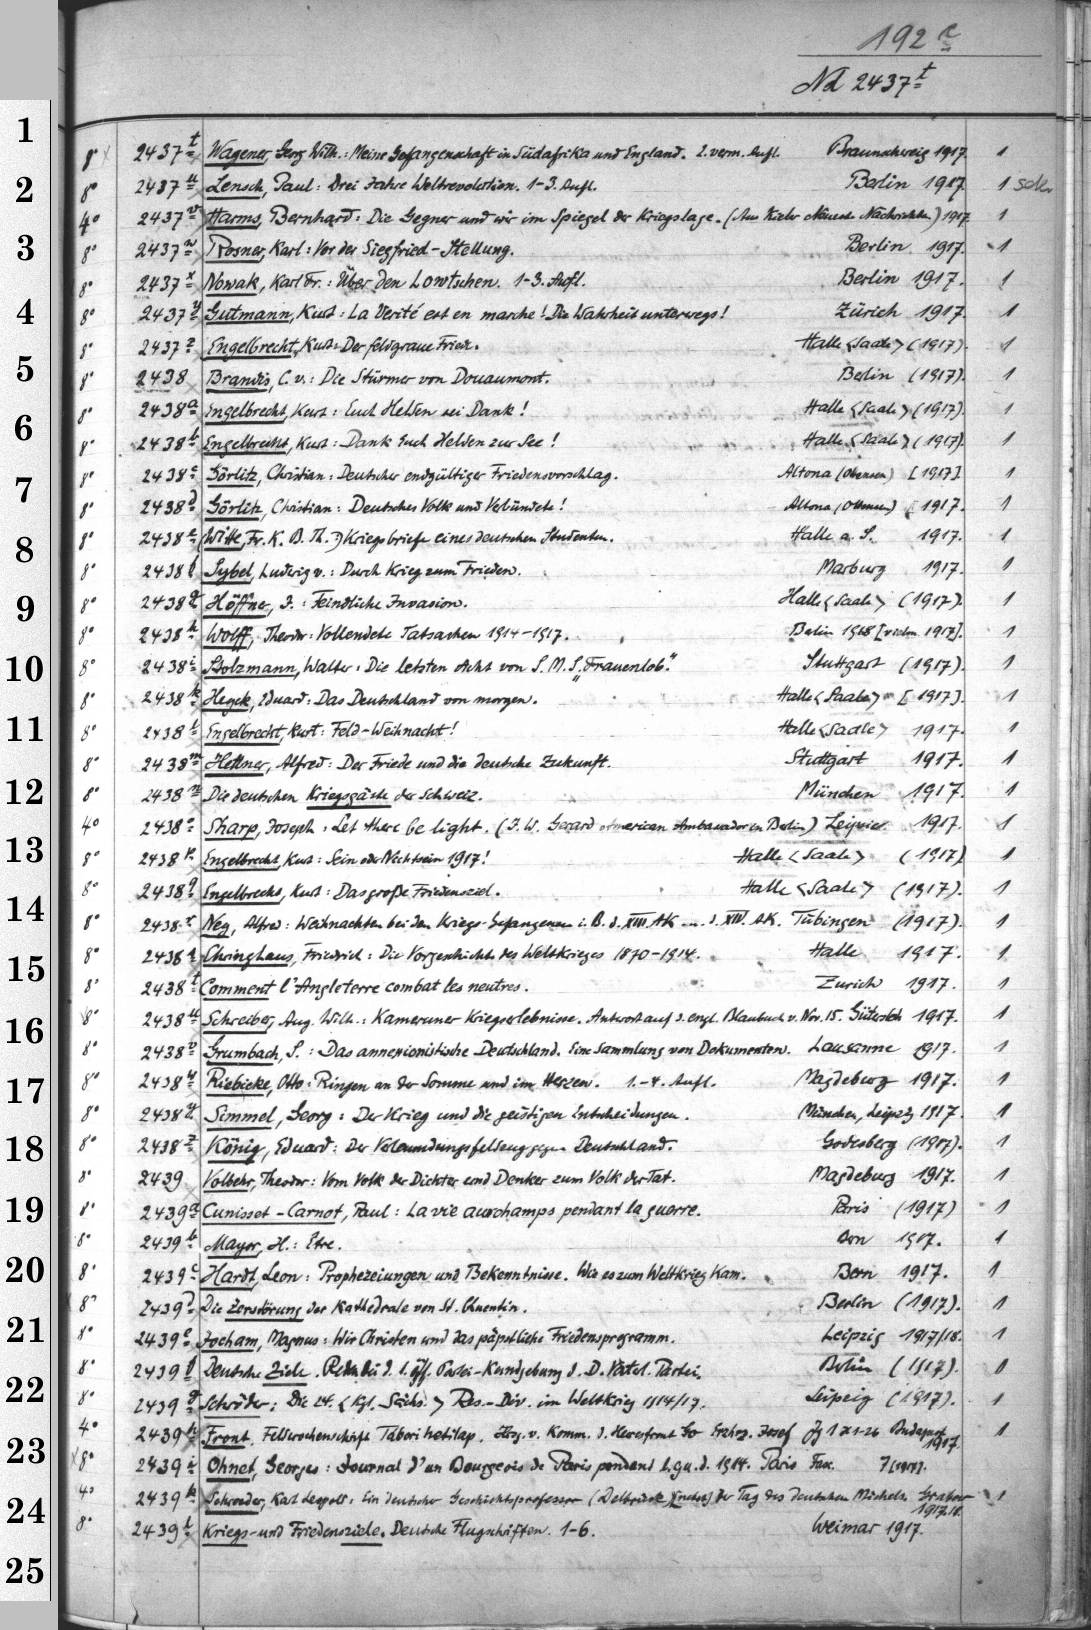 192
Nd 2437 t
1
8° 2437 t Wagener, Georg Wilh.: Meine Gefangenschaft in Südafrika und England. 2. verm. Aufl. Braunschweig 1917. 1
2
8° 2437 u Lensch, Paul: Drei Jahre Weltrevolution. 1-3. Aufl. Berlin 1917 1
4° 2437 v Harms, Bernhard: Die Gegner und wir im Spiegel der Kriegslage. (Aus Kieler Neueste Nachrichten) 1917. 1
3
8° 2437 w Rosner, Karl: Vor der Siegfried-Stellung. Berlin 1917. 1
8° 2437 x Nowak, Karl Fr.: Über den Lowtschen. 1-3. Aufl. Berlin 1917. 1
4
8° 2437 y Gutmann, Kurt: La Verité est en marche! Die Wahrheit unterwegs! Zürich 1917. 1
8° 2437 z Engelbrecht, Kurt: Der feldgraue Fried. Halle <Saale> (1917). 1
5
8° 2438 Brandis, C. v.: Die Stürmer von Douaumont. Berlin (1917). 1
8° 2438 a Engelbrecht, Kurt: Euch Helden sei Dank! Halle <Saale> (1917). 1
6
8° 2438 b Engelbrecht, Kurt: Dank Euch Helden zur See! Halle <Saale> (1917). 1
8° 2438 c Görlitz, Christian: Deutscher endgültiger Friedensvorschlag. Altona (Ottensen) [1917] 1
7
8° 2438 d Görlitz, Christian: Deutsches Volk und Verbündete! Altona (Ottensen) [1917. 1
8
8° 2438 e (Witte, Fr. K. B. Th.:) Kriegsbriefe eines deutschen Studenten. Halle a. S. 1917. 1
8° 2438 f Sybel, Ludwig v.: Durch Krieg zum Frieden. Marburg 1917. 1
9
8° 2438 g Höffner, J.: Feindliche Invasion. Halle <Saale> (1917). 1
8° 2438 h Wolff, Theodor: Vollendete Tatsachen 1914-1917. Berlin 1918 [vielm. 1917]. 1
10
8° 2438 i Stolzmann, Walter: Die letzten Acht von S. M. S. „Frauenlob". Stuttgart (1917). 1
8° 2438 k Heyck, Eduard: Das Deutschland von morgen. Halle <Saale> [1917]. 1
11
8° 2438 l Engelbrecht, Kurt: Feld-Weihnacht! Halle <Saale> 1917. 1
8° 2438 m Hettner, Alfred: Der Friede und die deutsche Zukunft. Stuttgart 1917. 1
12
8° 2438 n Die deutschen Kriegsgäste der Schweiz. München 1917. 1
4° 2438 o Sharp, Joseph: Let there be light. (J. W. Gerard American Ambassador in Berlin) Leipzig. 1917. 1
13
8° 2438 p Engelbrecht, Kurt: Sein oder Nichtsein 1917! Halle <Saale> (1917) 1
8° 2438 q Engelbrecht, Kurt: Das große Friedensziel. Halle <Saale> (1917). 1
14
8° 2438 r Alfred: Weihnachten bei den Kriegs-Gefangenen i. B. d. XIII. AK d. XIV. AK. Tübingen (1917). 1
15
8° 2438 s Friedrich: Die Vorgeschichte des Weltkrieges 1870-1914. Halle 1917. 1
8° 2438 t Comment l'Angleterre combat les neutres. Zurich 1917. 1
16
8° 2438 u Schreiber, Aug. Wilh.: Kameruner Kriegserlebnisse. Antwort auf d. engl. Blaubuch v. Nov. 15. Gütersloh 1917. 1
8° 2438 v Grumbach, S.: Das annexionistische Deutschland. Eine Sammlung von Dokumenten. Lausanne 1917. 1
17
8° 2438 Riebicke, Otto: Ringen an der Somme und im Herzen. 1.-4. Aufl. Magdeburg 1917. 1
8° 2438 y Simmel, Georg: Der Krieg und die geistigen Entscheidungen. München, Leipzig 1917. 1
18
8° 2438 z König, Eduard: Der Verleumdungsfeldzug gegen Deutschland. Godesberg (1917). 1
8° 2439 Volbehr, Theodor: Vom Volk der Dichter und Denker zum Volk der Tat. Magdeburg 1917. 1
19
8° 2439 a Cunisset-Carnot, Paul: La vie aux champs pendant la guerre. Paris (1917) 1
8° 2439 b Mayor, H.: 1917. 1
20
8° 2439 c Hardt, Leon: Prophezeiungen und Bekenntnisse. Wie es zum Weltkrieg kam. Bern 1917. 1
8° 2439 d Die Zerstörung der Kathedrale von St. Quentin. Berlin (1917). 1
21
8° 2439 e Jocham, Magnus: Wir Christen und das päpstliche Friedensprogramm. Leipzig 1917/18. 1
8° 2439 f Deutsche Ziele. Reden bei d. 1. öff. Partei-Kundgebung d. D. Vaterl. Partei. Berlin (1917). 1
22
8° 2439 g Schröder: Die 24. <Kgl. Sächs.> Res.-Div. im Weltkrieg 1914/17. Leipzig (1917). 1
4° 2439 h Front. Tábori hetilap. Hrsg. v. Komm. d. Heeresfront Jg 1 1-26 Budapest 1917. 1
23
8° 2439 i Ohnet, Georges: Journal d'un Bourgeois de Paris pendant l. gu. d. 1914. Paris Fasc. 7 [1917].
4° 2439 k Schroeder, Karl Leopold: Ein deutscher Geschichtsprofessor (Delbrück) Der Tag des deutschen Michels. Grabow 1917.18. 1
24
8° 2439 l Kriegs- und Friedensziele. Deutsche Flugschriften. 1-6. Weimar 1917.
25